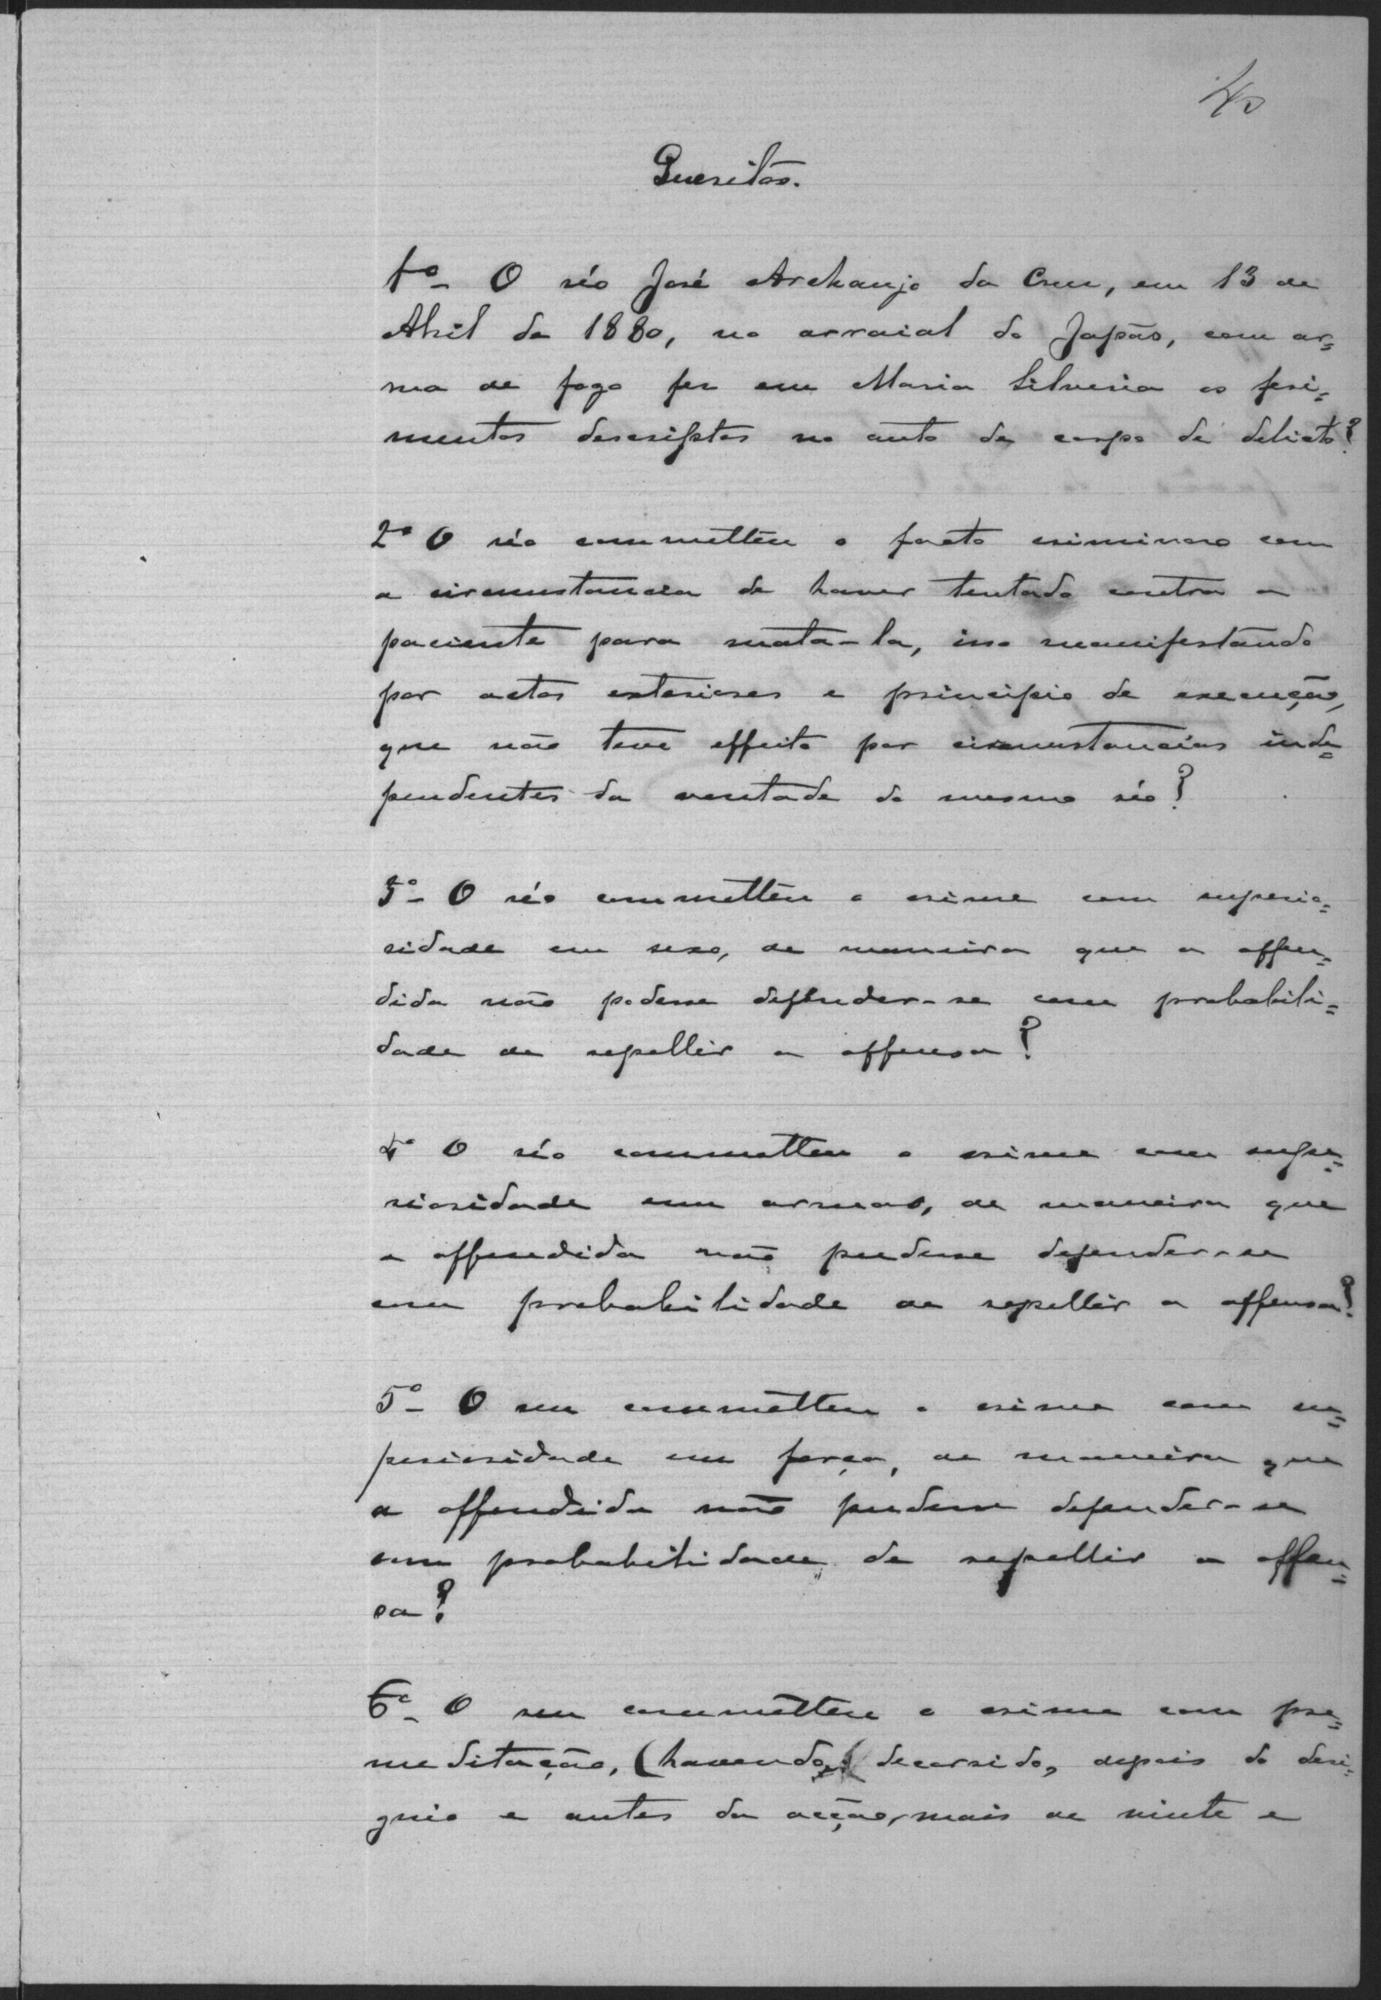 40
Quesitos.
1º- O réo José Archanjo da Cruz, em 13 de
Abril de 1880, no arraial do Japão, com ar=
ma de fogo fez em Maria Silveria os feri=
mentos descriptos no auto de corpo de delicto?
2º O réo commetteu o facto criminoso com
a circumstancia de haver tentado contra a
paciente para mata-la, isso manifestando
por actos exteriores e principio de execução,
que não teve effeito por circumstancias inde=
pendentes da vontade do mesmo réo?
3º- O réo commetteu o crime com superio=
ridade em sexo, de maneira que a offen=
dida não podesse defender-se com probabili=
dade de repellir a offensa?
4º O réo commetteu o crime com supe=
rioridade em armas, de maneira que
a offendida não pudesse defender-se
com probabilidade de repellir a offensa?
5º- O reu commetteu o crime com su=
perioridade em força, de maneira que
a offendida não pudesse defender-se
com probabilidade de repellir a offen=
sa?
6º- O reu commetteu o crime com pre=
meditação, (havendo decorrido, depois do desi=
gnio e antes da acção, mais de vinte e